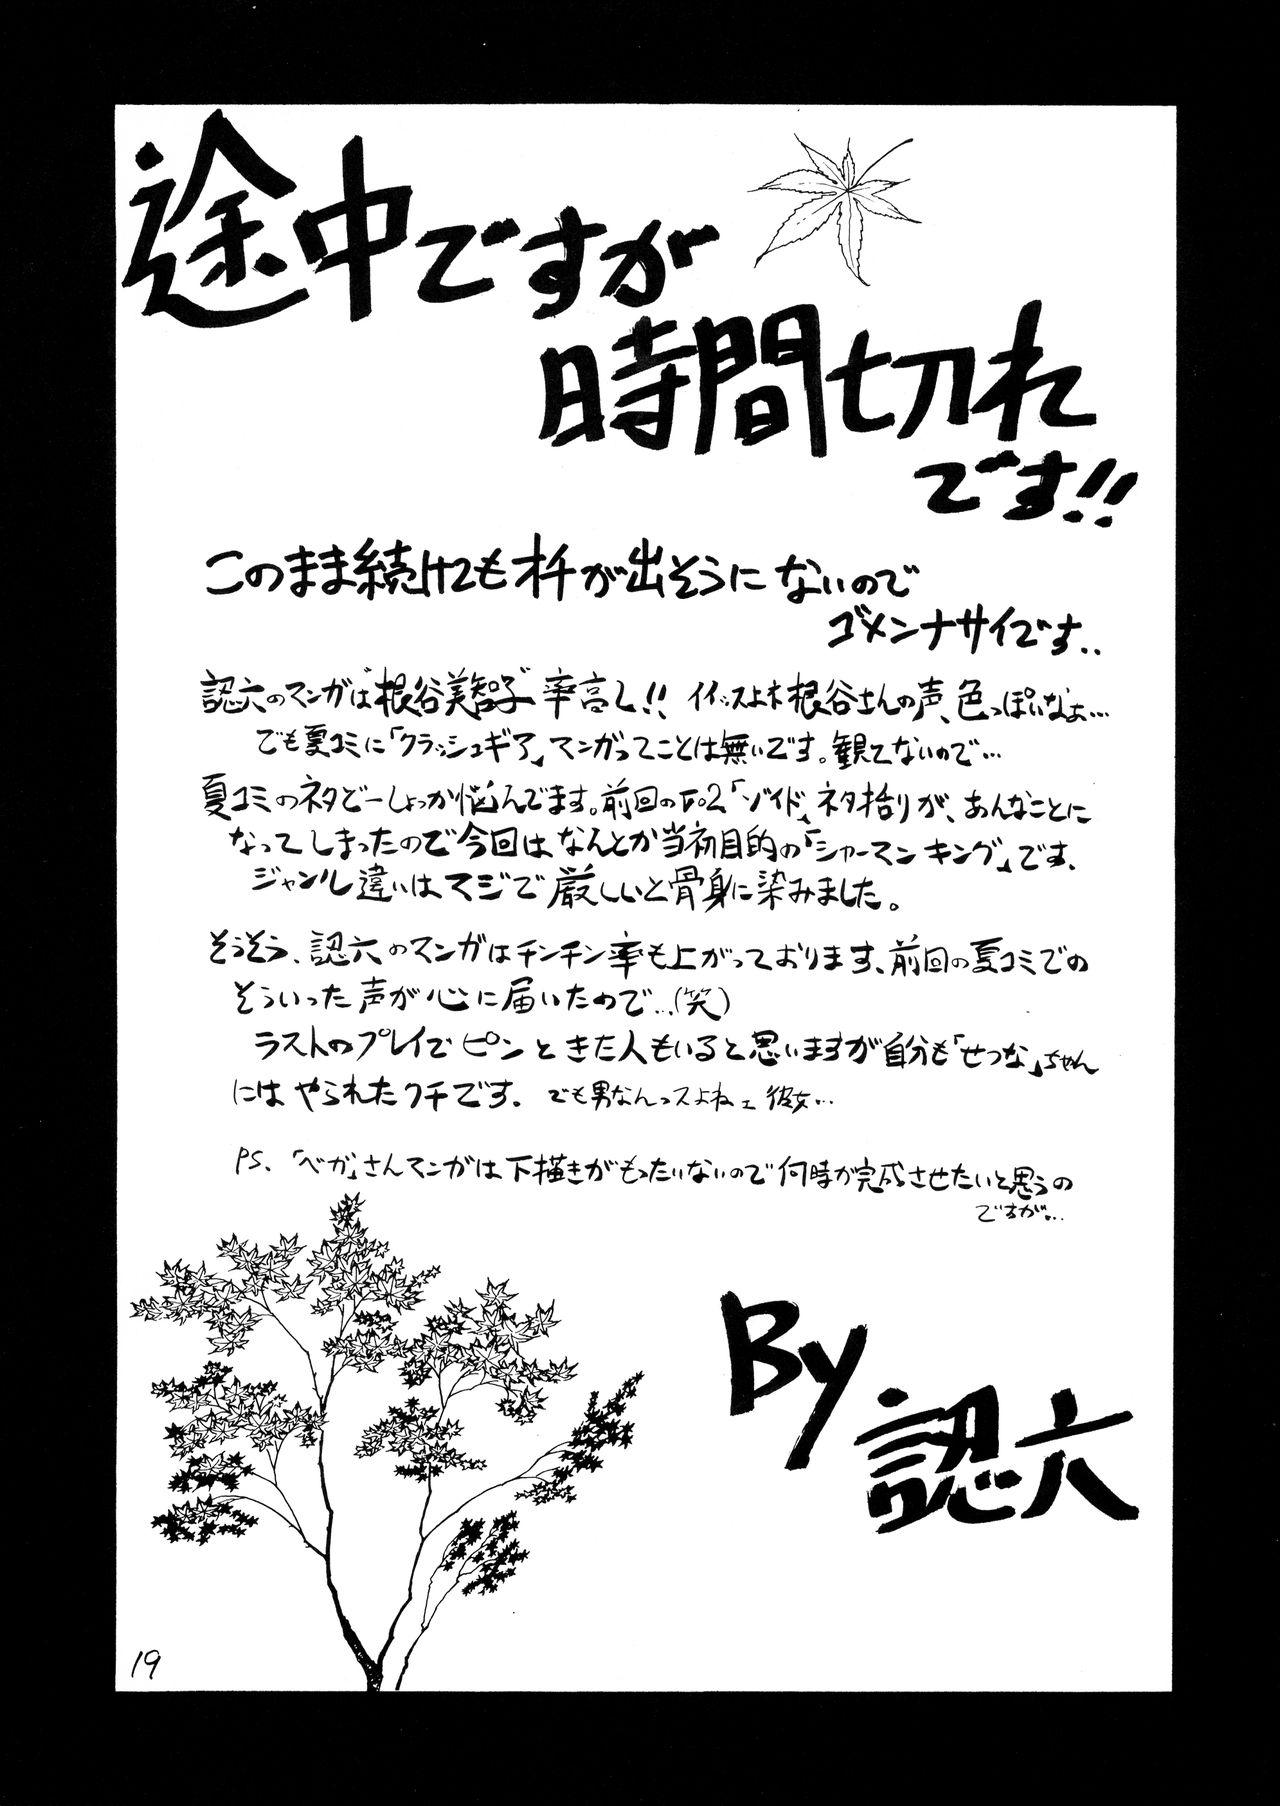 途中ですが
時間切れ
です!!
このまま続けてもオチが出そうにないので
ゴメンナサイです..
認六のマンガは"根谷美智子"率高し!! イイッスよネ根谷さんの声、色っぽいなぁ…
でも夏コミに「クラッシュギア」マンガってことは無いです。観てないので…
夏コミのネタどーしょっか悩んでます。前回のVo2「ゾイド」ネタ拾りが、あんなことに
なってしまったので今回はなんとか当初目的の「シャーマンキング」です、
ジャンル違いはマジで厳しいと骨身に染みました。
そうそう、認六のマンガはチンチン率も上がっております、前回の夏コミでの
そういった声が心に届いたので…(笑)
ラストのプレイでピンときた人もいると思いますが自分も「せつな」ちゃん
にはやられたクチです、でも男なんっスよね 彼女…
PS、「ベガ」さんマンガは下描きがもったいないので何時か完成させたいと思うの
ですが…
By
認六
19